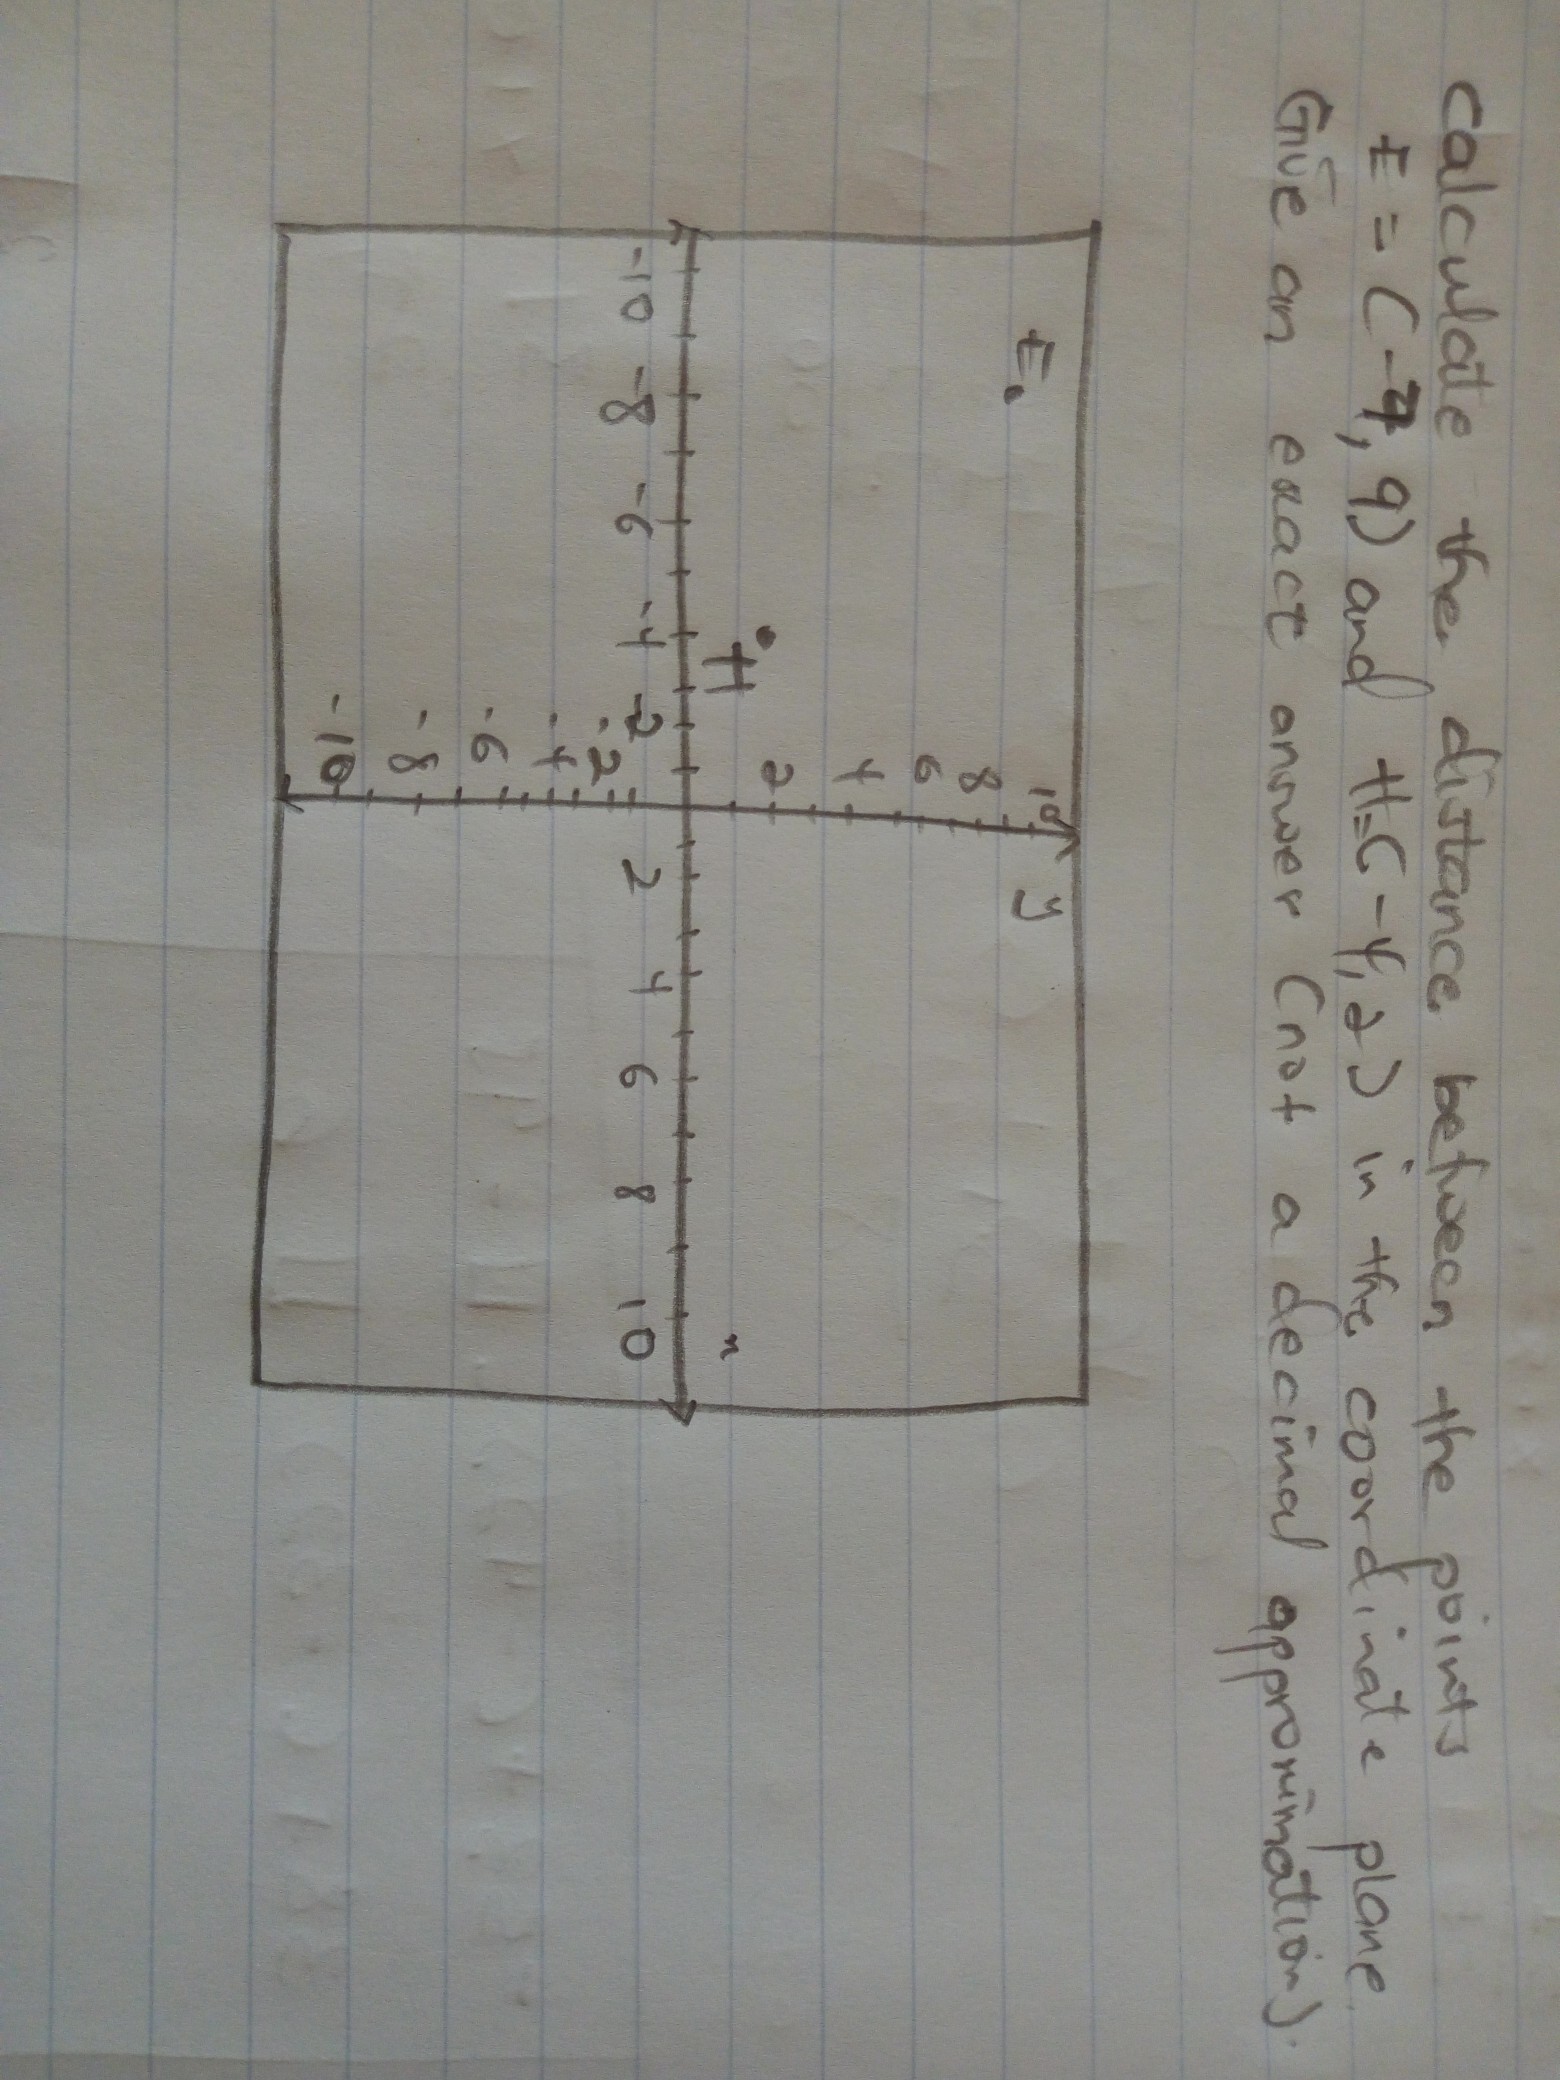 Calculate the distance between the points
E = (-7, 9) and H=(-4, 2) in the coordinate plane.
Give an exact answer (not a decimal approximation).
y
10
8
6
4
2
E
H
x
-10 -8 -6 -4 -2 2 4 6 8 10
-2
-4
-6
-8
-10